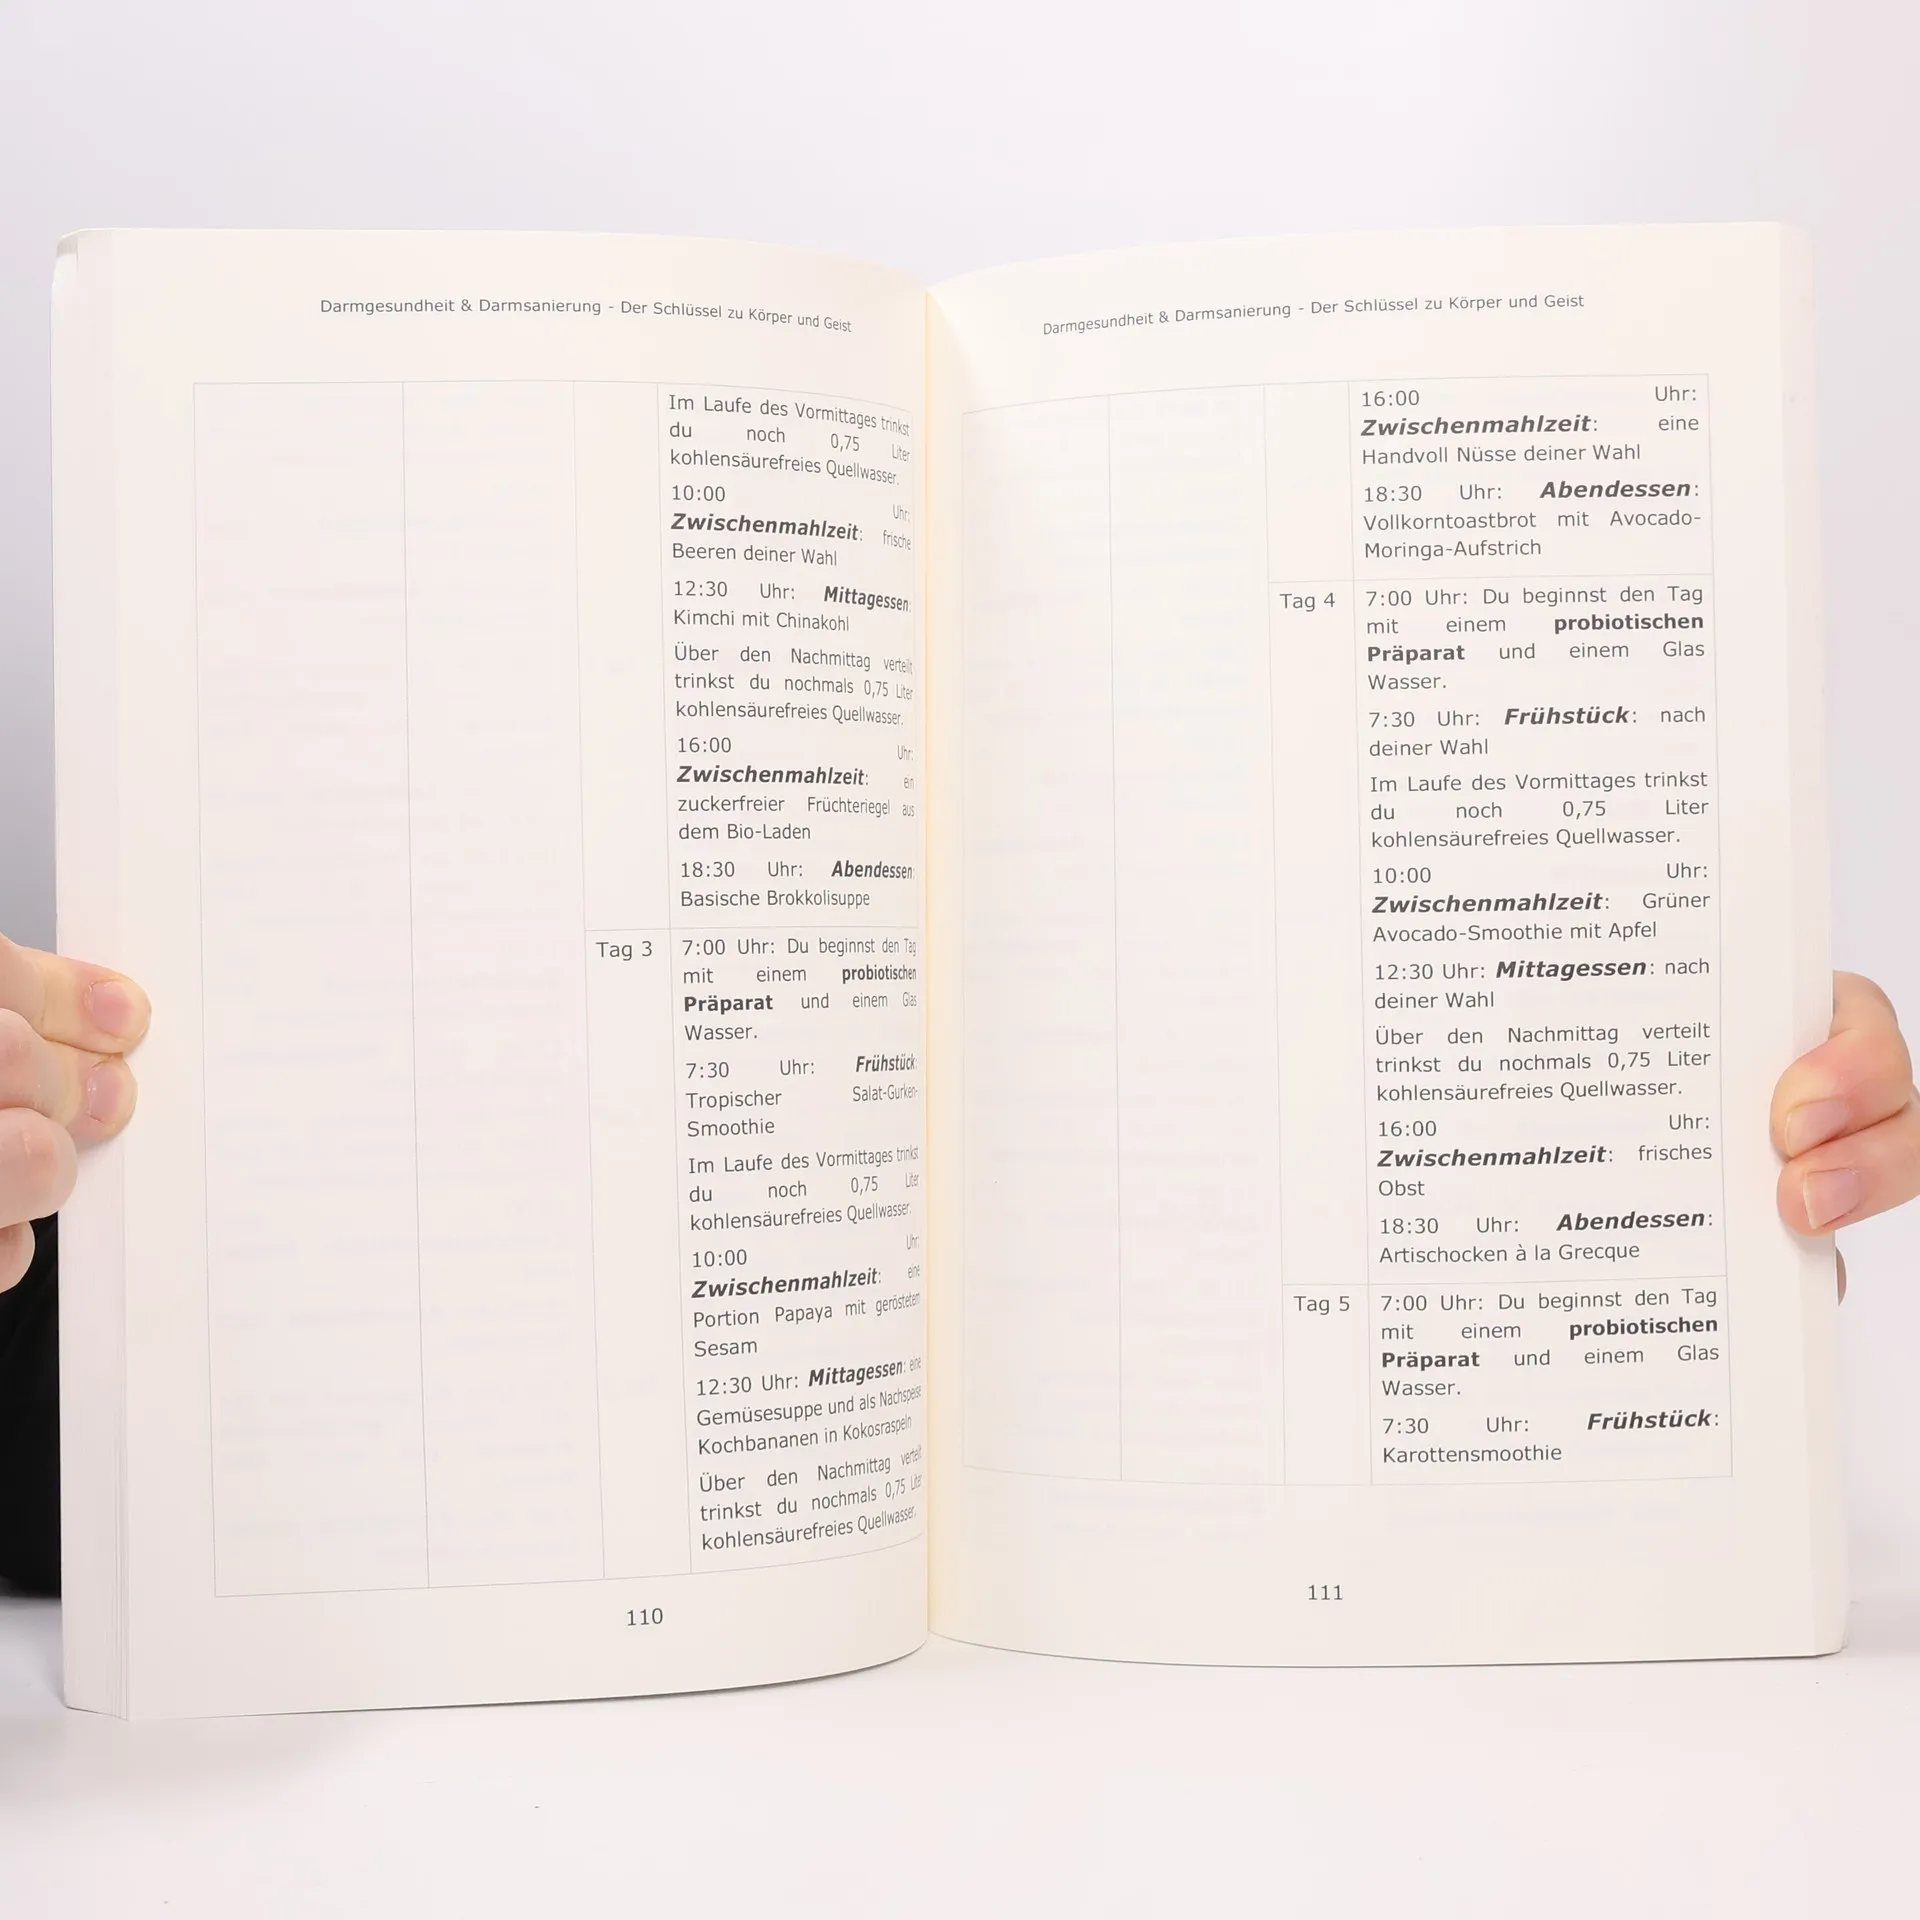 Darmgesundheit & Darmsanierung - Der Schlüssel zu Körper und Geist
Im Laufe des Vormittages trinkst
du noch 0,75 Liter
kohlensäurefreies Quellwasser.
10:00 Uhr:
Zwischenmahlzeit: frische
Beeren deiner Wahl
12:30 Uhr: Mittagessen:
Kimchi mit Chinakohl
Über den Nachmittag verteilt
trinkst du nochmals 0,75 Liter
kohlensäurefreies Quellwasser.
16:00 Uhr:
Zwischenmahlzeit: ein
zuckerfreier Früchteriegel aus
dem Bio-Laden
18:30 Uhr: Abendessen:
Basische Brokkolisuppe
Tag 3
7:00 Uhr: Du beginnst den Tag
mit einem probiotischen
Präparat und einem Glas
Wasser.
7:30 Uhr: Frühstück:
Tropischer Salat-Gurken-
Smoothie
Im Laufe des Vormittages trinkst
du noch 0,75 Liter
kohlensäurefreies Quellwasser.
10:00 Uhr:
Zwischenmahlzeit: eine
Portion Papaya mit geröstetem
Sesam
12:30 Uhr: Mittagessen: eine
Gemüsesuppe und als Nachspeise
Kochbananen in Kokosraspeln
Über den Nachmittag verteilt
trinkst du nochmals 0,75 Liter
kohlensäurefreies Quellwasser.
110
Darmgesundheit & Darmsanierung - Der Schlüssel zu Körper und Geist
16:00 Uhr:
Zwischenmahlzeit: eine
Handvoll Nüsse deiner Wahl
18:30 Uhr: Abendessen:
Vollkorntoastbrot mit Avocado-
Moringa-Aufstrich
Tag 4
7:00 Uhr: Du beginnst den Tag
mit einem probiotischen
Präparat und einem Glas
Wasser.
7:30 Uhr: Frühstück: nach
deiner Wahl
Im Laufe des Vormittages trinkst
du noch 0,75 Liter
kohlensäurefreies Quellwasser.
10:00 Uhr:
Zwischenmahlzeit: Grüner
Avocado-Smoothie mit Apfel
12:30 Uhr: Mittagessen: nach
deiner Wahl
Über den Nachmittag verteilt
trinkst du nochmals 0,75 Liter
kohlensäurefreies Quellwasser.
16:00 Uhr:
Zwischenmahlzeit: frisches
Obst
18:30 Uhr: Abendessen:
Artischocken à la Grecque
Tag 5
7:00 Uhr: Du beginnst den Tag
mit einem probiotischen
Präparat und einem Glas
Wasser.
7:30 Uhr: Frühstück:
Karottensmoothie
111